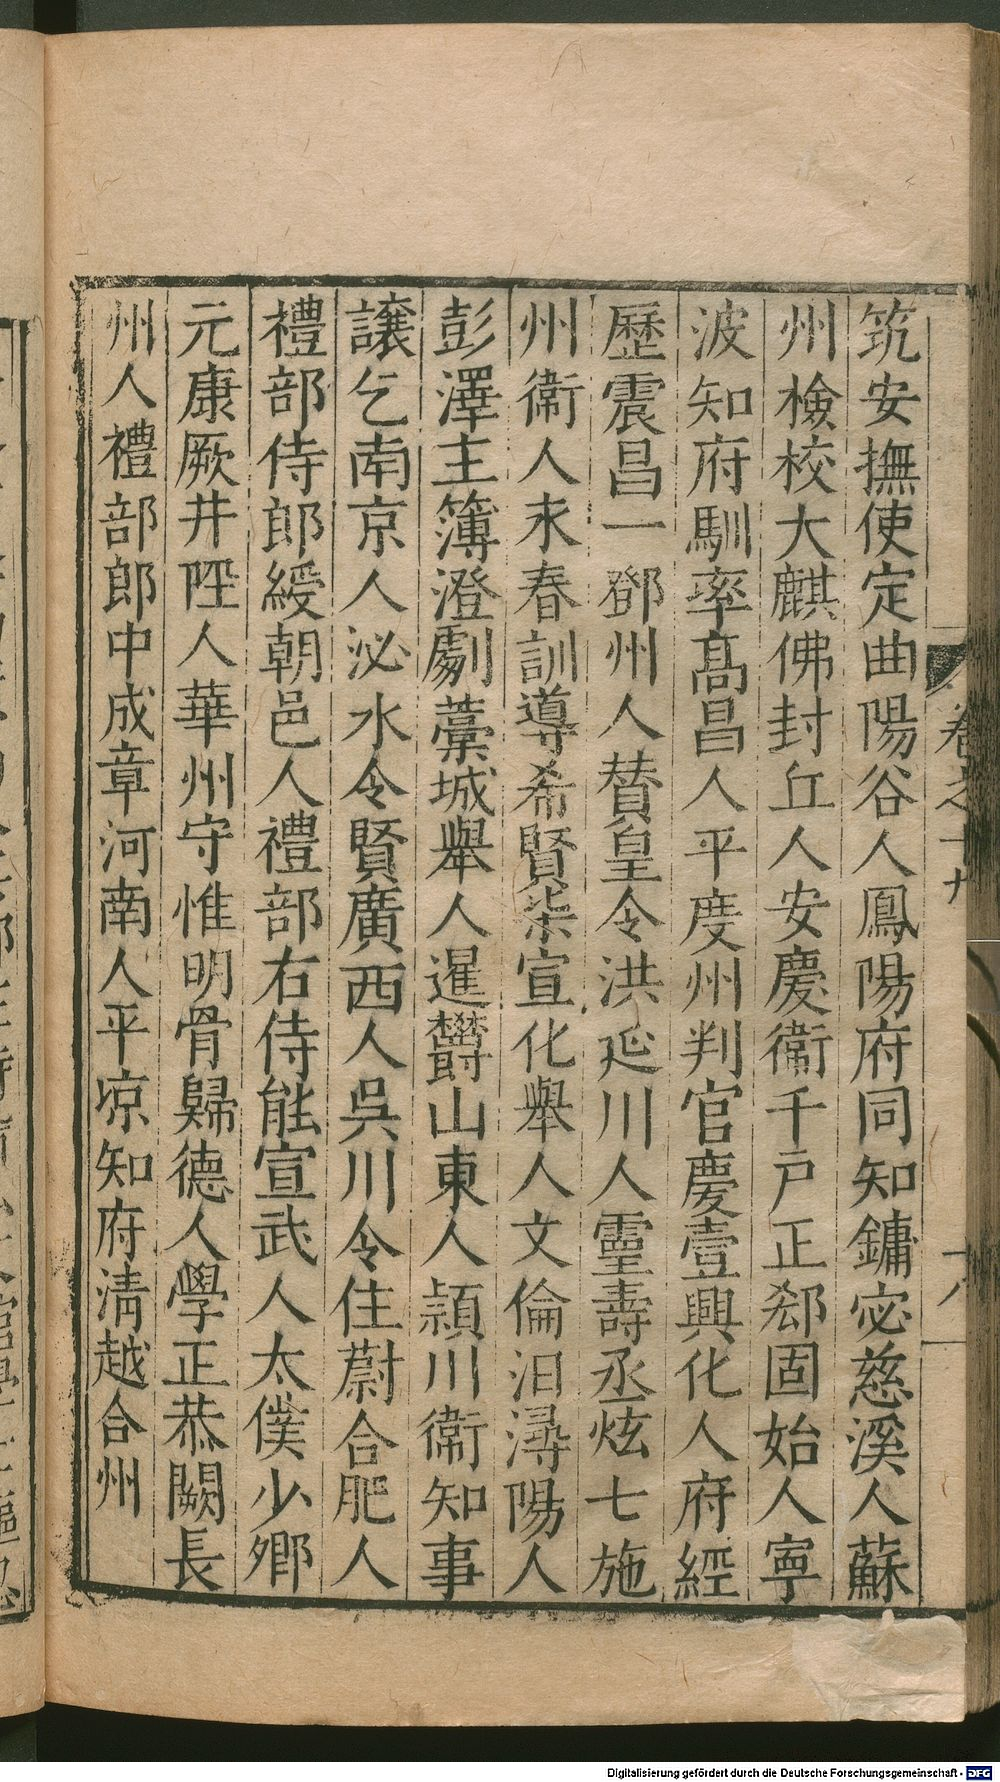 筑安撫使定曲陽谷人鳳陽府同知鏞宓慈溪人蘇
州檢校大麒佛封丘人安慶衞千戸正郄固始人寧
波知府馴率髙昌人平度州判官慶壹興化人府經
歷震昌一鄧州人賛皇令洪延川人靈壽丞炫七施
州衞人永春訓導希賢柒宣化舉人文倫汩潯陽人
彭澤主簿澄劇藁城舉人暹欝山東人頴川衞知事
譲乞南京人泌水令賢廣西人吳川令住蔚合肥人
禮部侍郎綬朝邑人禮部右侍能宣武人太僕少卿
元康厥井陘人華州守惟明骨歸德人學正恭闕長
州人禮部郎中成章河南人平凉知府淸越合州
卷之十九
十八
Digitalisierung gefördert durch die Deutsche Forschungsgemeinschaft - DFG